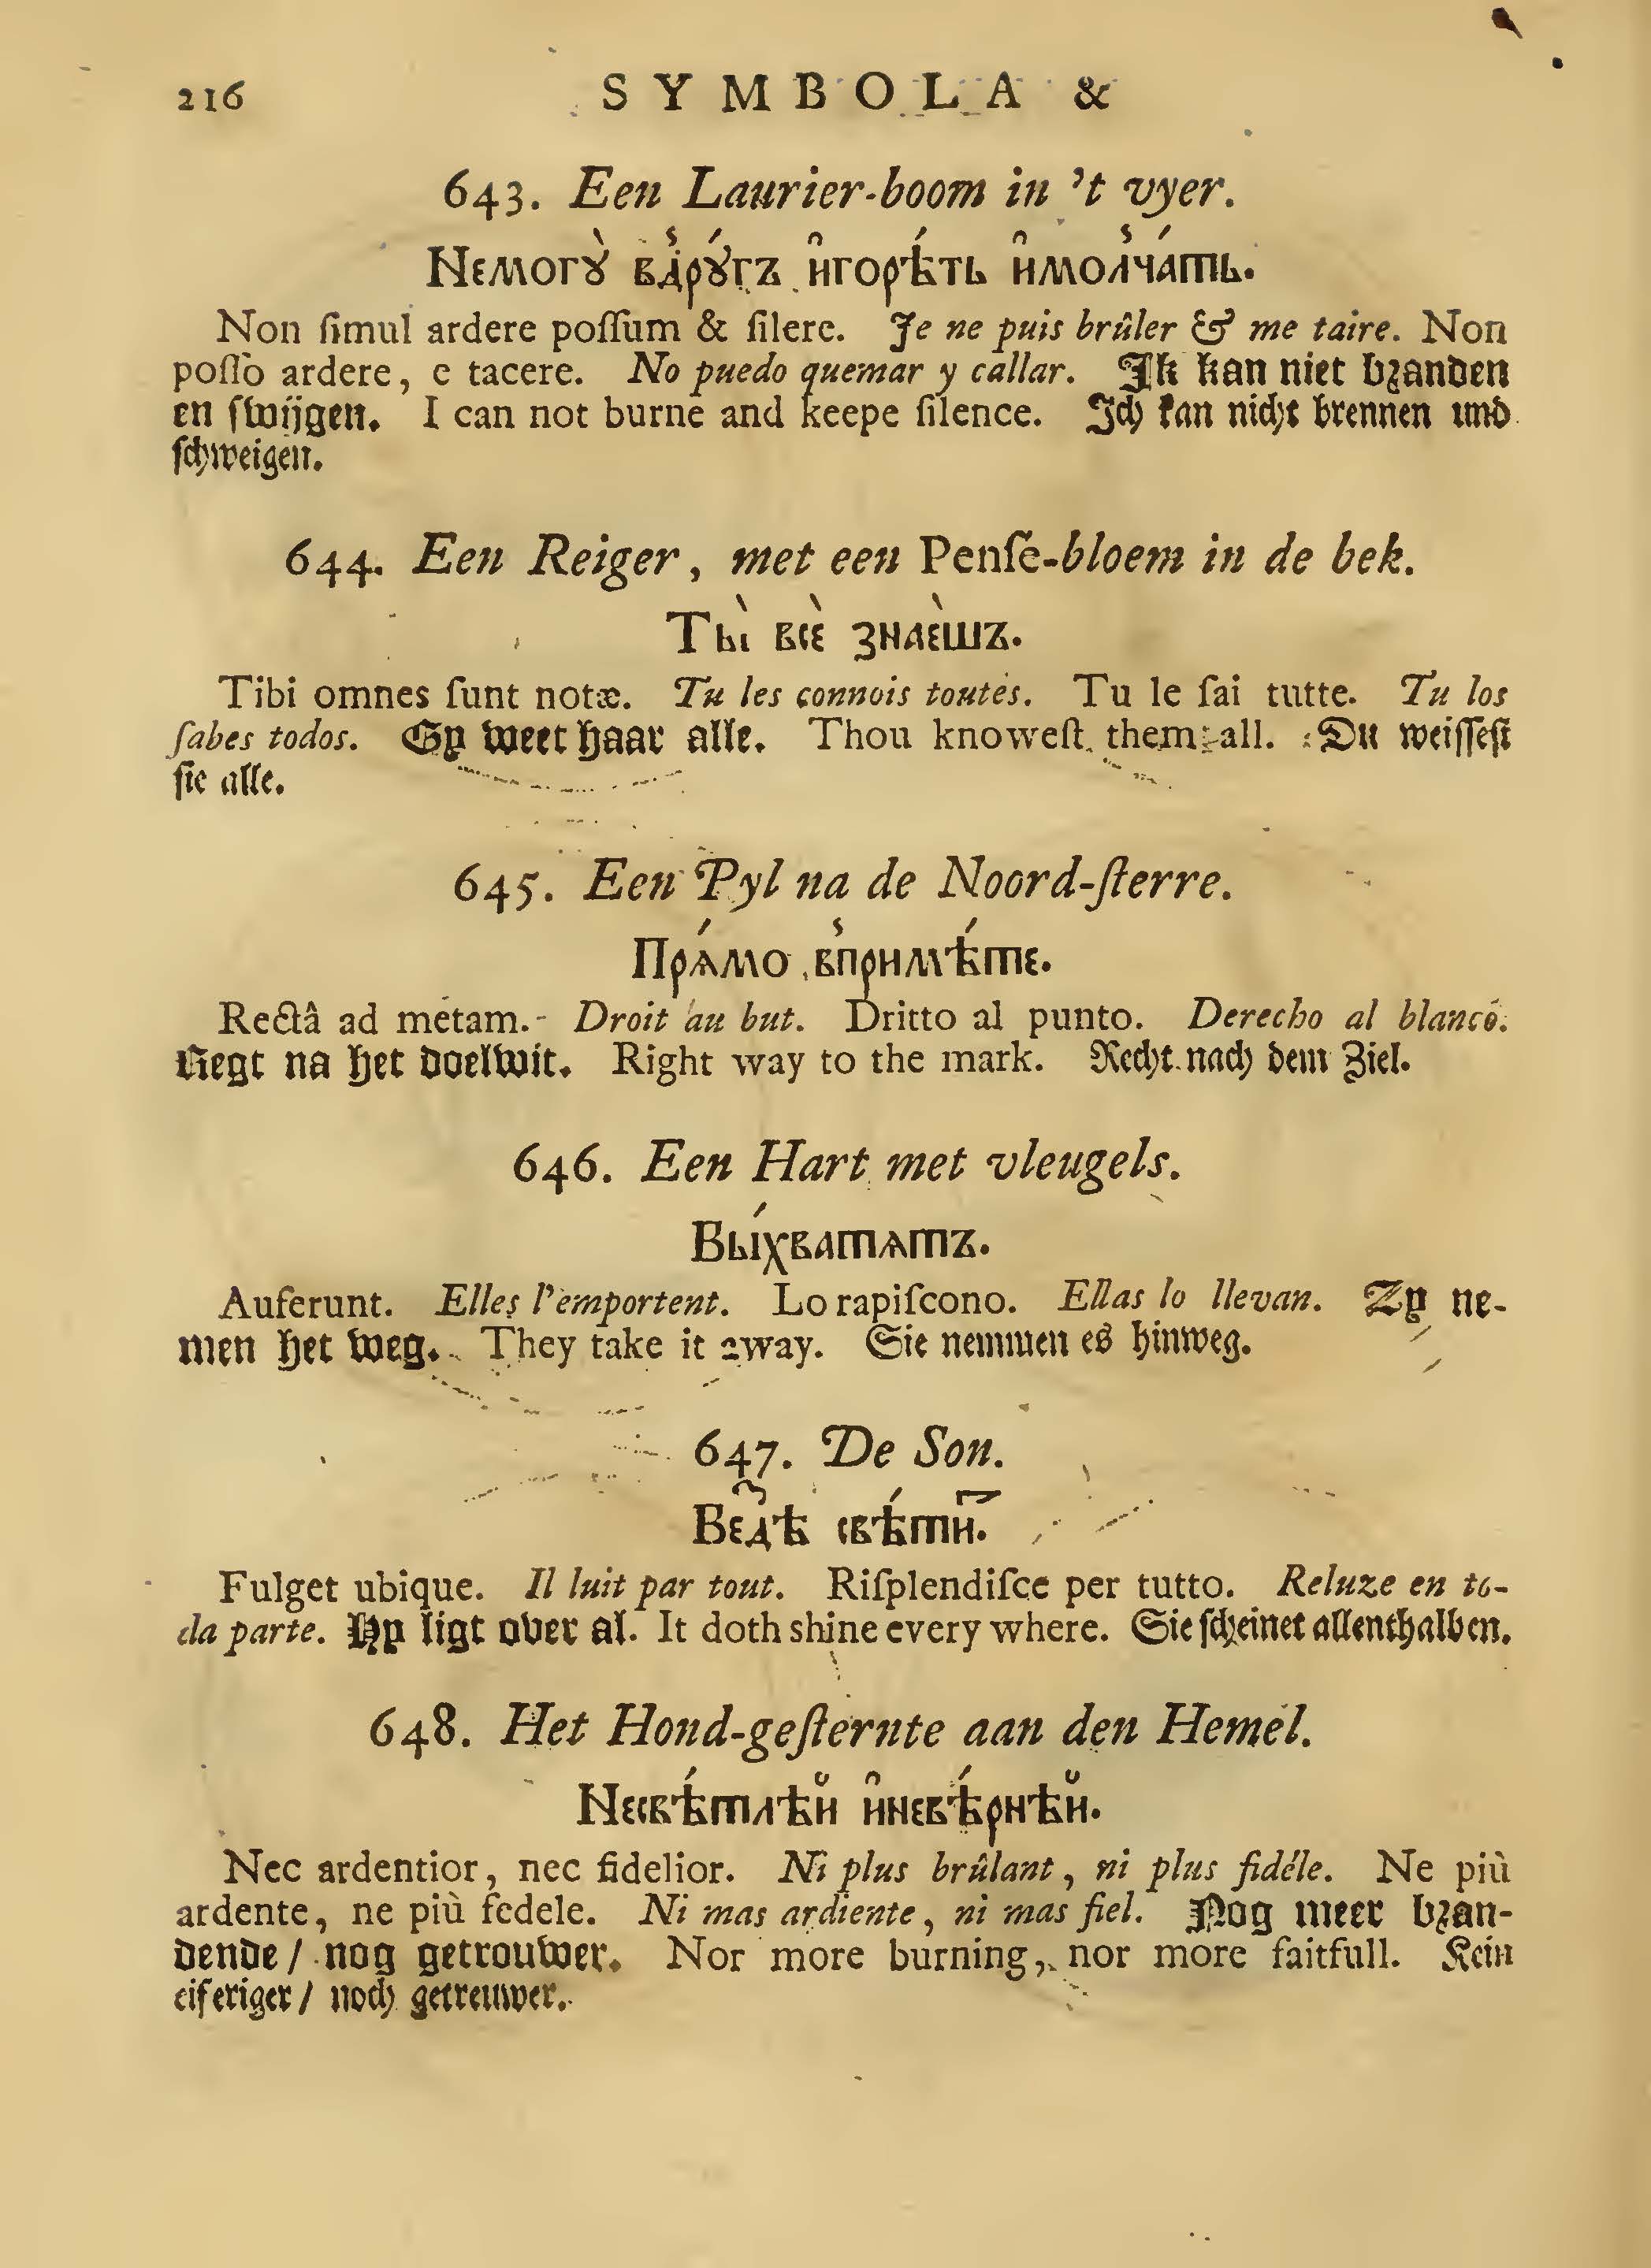 216 SYMBOLA &
643. Een Laurier-boom in 't vyer.
Немогꙋ̀ вдрꙋ́гъ и҆горѣ́ть и҆молча́ть.
Non ſimul ardere poſſum & ſilere. Je ne puis brûler & me taire. Non
poſſo ardere, e tacere. No puedo quemar y callar. Ik kan niet bꝛanden
en ſwijgen. I can not burne and keepe ſilence. Ich kan nicht brennen und
ſchweigen.
644. Een Reiger, met een Penſé-bloem in de bek.
Ты̀ всѐ знаѐшъ.
Tibi omnes ſunt notæ. Tu les connois toutes. Tu le ſai tutte. Tu los
ſabes todos. Gy weet haar alle. Thou knoweſt them all. Du weiſſeſt
ſie alle.
645. Een Pyl na de Noord-ſterre.
Прѧ́мо впримѣ́те.
Rectâ ad metam. Droit au but. Dritto al punto. Derecho al blanco.
Regt na het doelwit. Right way to the mark. Recht nach dem Ziel.
646. Een Hart met vleugels.
Вы́хватѧтъ.
Auferunt. Elles l'emportent. Lo rapiſcono. Ellas lo llevan. Zy ne-
men het weg. They take it away. Sie nemmen es hinweg.
647. De Son.
Ведѣ̀ свѣ́ти.
Fulget ubique. Il luit par tout. Riſplendiſce per tutto. Reluze en to-
da parte. Hy ligt over al. It doth shine every where. Sie ſcheinet allenthalben.
648. Het Hond-geſternte aan den Hemel.
Несвѣ́тлѣй и҆невѣ́рнѣй.
Nec ardentior, nec fidelior. Ni plus brûlant, ni plus fidéle. Ne più
ardente, ne più fedele. Ni mas ardiente, ni mas fiel. Nog meer bꝛan-
dende / nog getrouwer. Nor more burning, nor more faitfull. Kein
eiferiger / noch getreuwer.